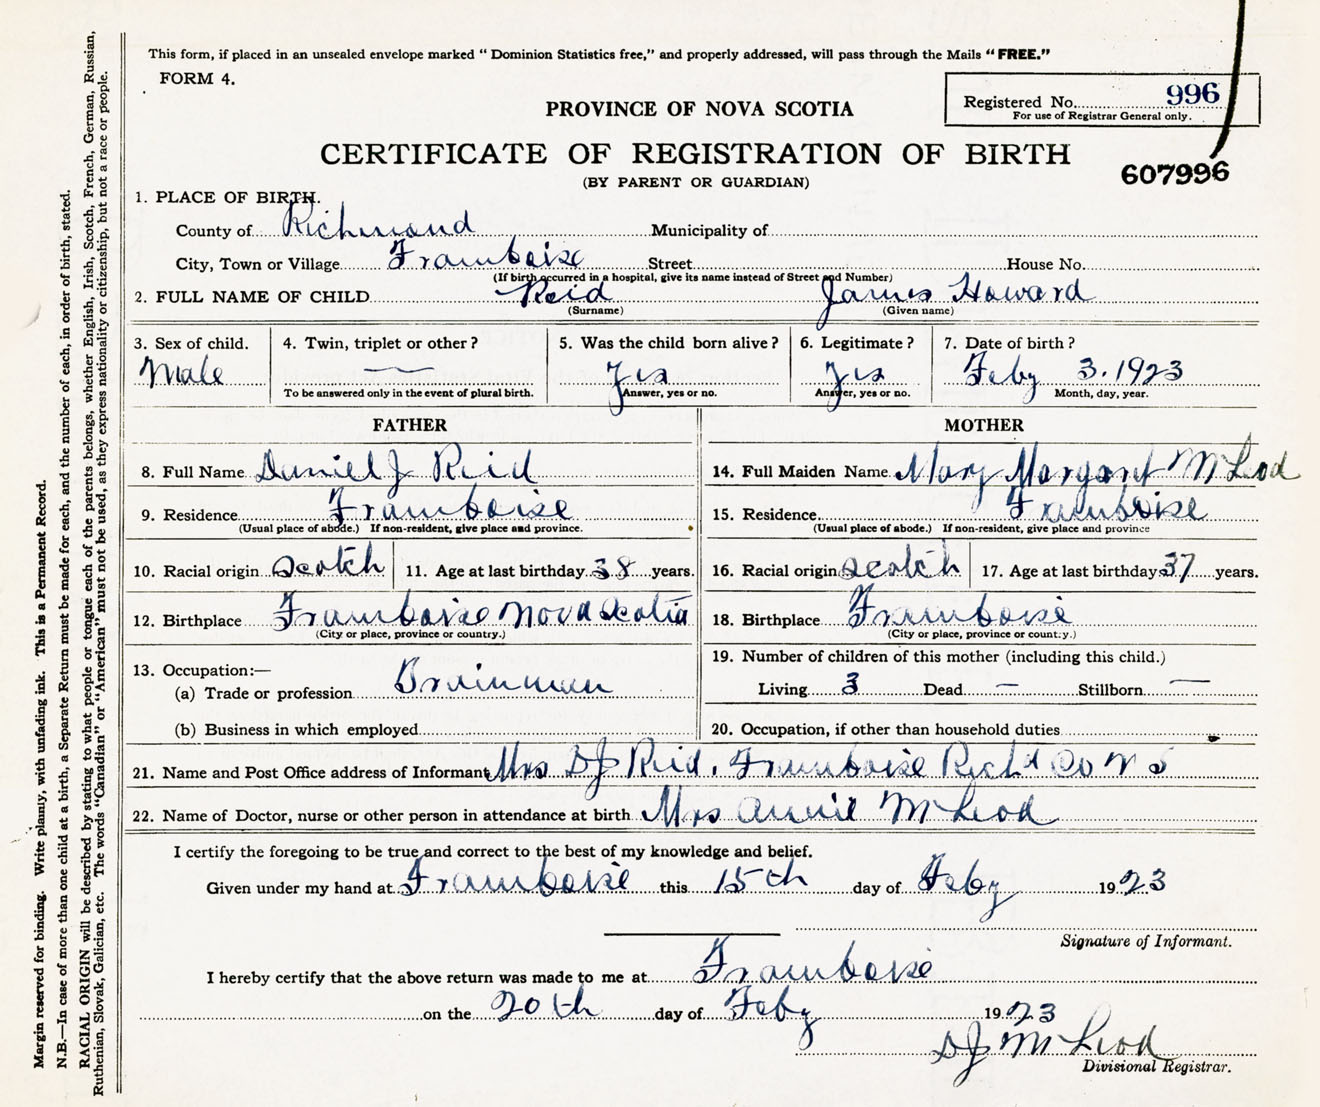 This form, if placed in an unsealed envelope marked "Dominion Statistics free," and properly addressed, will pass through the Mails "FREE."
FORM 4.
Registered No. 996
For use of Registrar General only.
PROVINCE OF NOVA SCOTIA
CERTIFICATE OF REGISTRATION OF BIRTH
607996
(BY PARENT OR GUARDIAN)
1. PLACE OF BIRTH.
County of Richmond Municipality of
City, Town or Village Framboise Street House No.
(If birth occurred in a hospital, give its name instead of Street and Number)
2. FULL NAME OF CHILD Reid James Howard
(Surname) (Given name)
3. Sex of child. 4. Twin, triplet or other? 5. Was the child born alive? 6. Legitimate? 7. Date of birth?
Male — Yes Yes Feby 3. 1923
To be answered only in the event of plural birth. Answer, yes or no. Answer, yes or no. Month, day, year.
FATHER MOTHER
8. Full Name Daniel J Reid 14. Full Maiden Name Mary Margaret McLeod
9. Residence Framboise 15. Residence Framboise
(Usual place of abode.) If non-resident, give place and province. (Usual place of abode.) If non-resident, give place and province
10. Racial origin Scotch 11. Age at last birthday 38 years. 16. Racial origin Scotch 17. Age at last birthday 37 years.
12. Birthplace Framboise Nova Scotia 18. Birthplace Framboise
(City or place, province or country.) (City or place, province or country.)
13. Occupation:— 19. Number of children of this mother (including this child.)
(a) Trade or profession Brainman Living 3 Dead — Stillborn —
(b) Business in which employed 20. Occupation, if other than household duties
21. Name and Post Office address of Informant Mrs DJ Reid. Framboise Richd Co N S
22. Name of Doctor, nurse or other person in attendance at birth Mrs Annie McLeod
I certify the foregoing to be true and correct to the best of my knowledge and belief.
Given under my hand at Framboise this 15th day of Feby 1923
Signature of Informant.
I hereby certify that the above return was made to me at Framboise
on the 20th day of Feby 1923
DJ McLeod
Divisional Registrar.
Margin reserved for binding. Write plainly, with unfading ink. This is a Permanent Record.
N.B.—In case of more than one child at a birth, a Separate Return must be made for each, and the number of each, in order of birth, stated.
RACIAL ORIGIN will be described by stating to what people or tongue each of the parents belongs, whether English, Irish, Scotch, French, German, Russian,
Ruthenian, Slovak, Galician, etc. The words "Canadian" or "American" must not be used, as they express nationality or citizenship, but not a race or people.